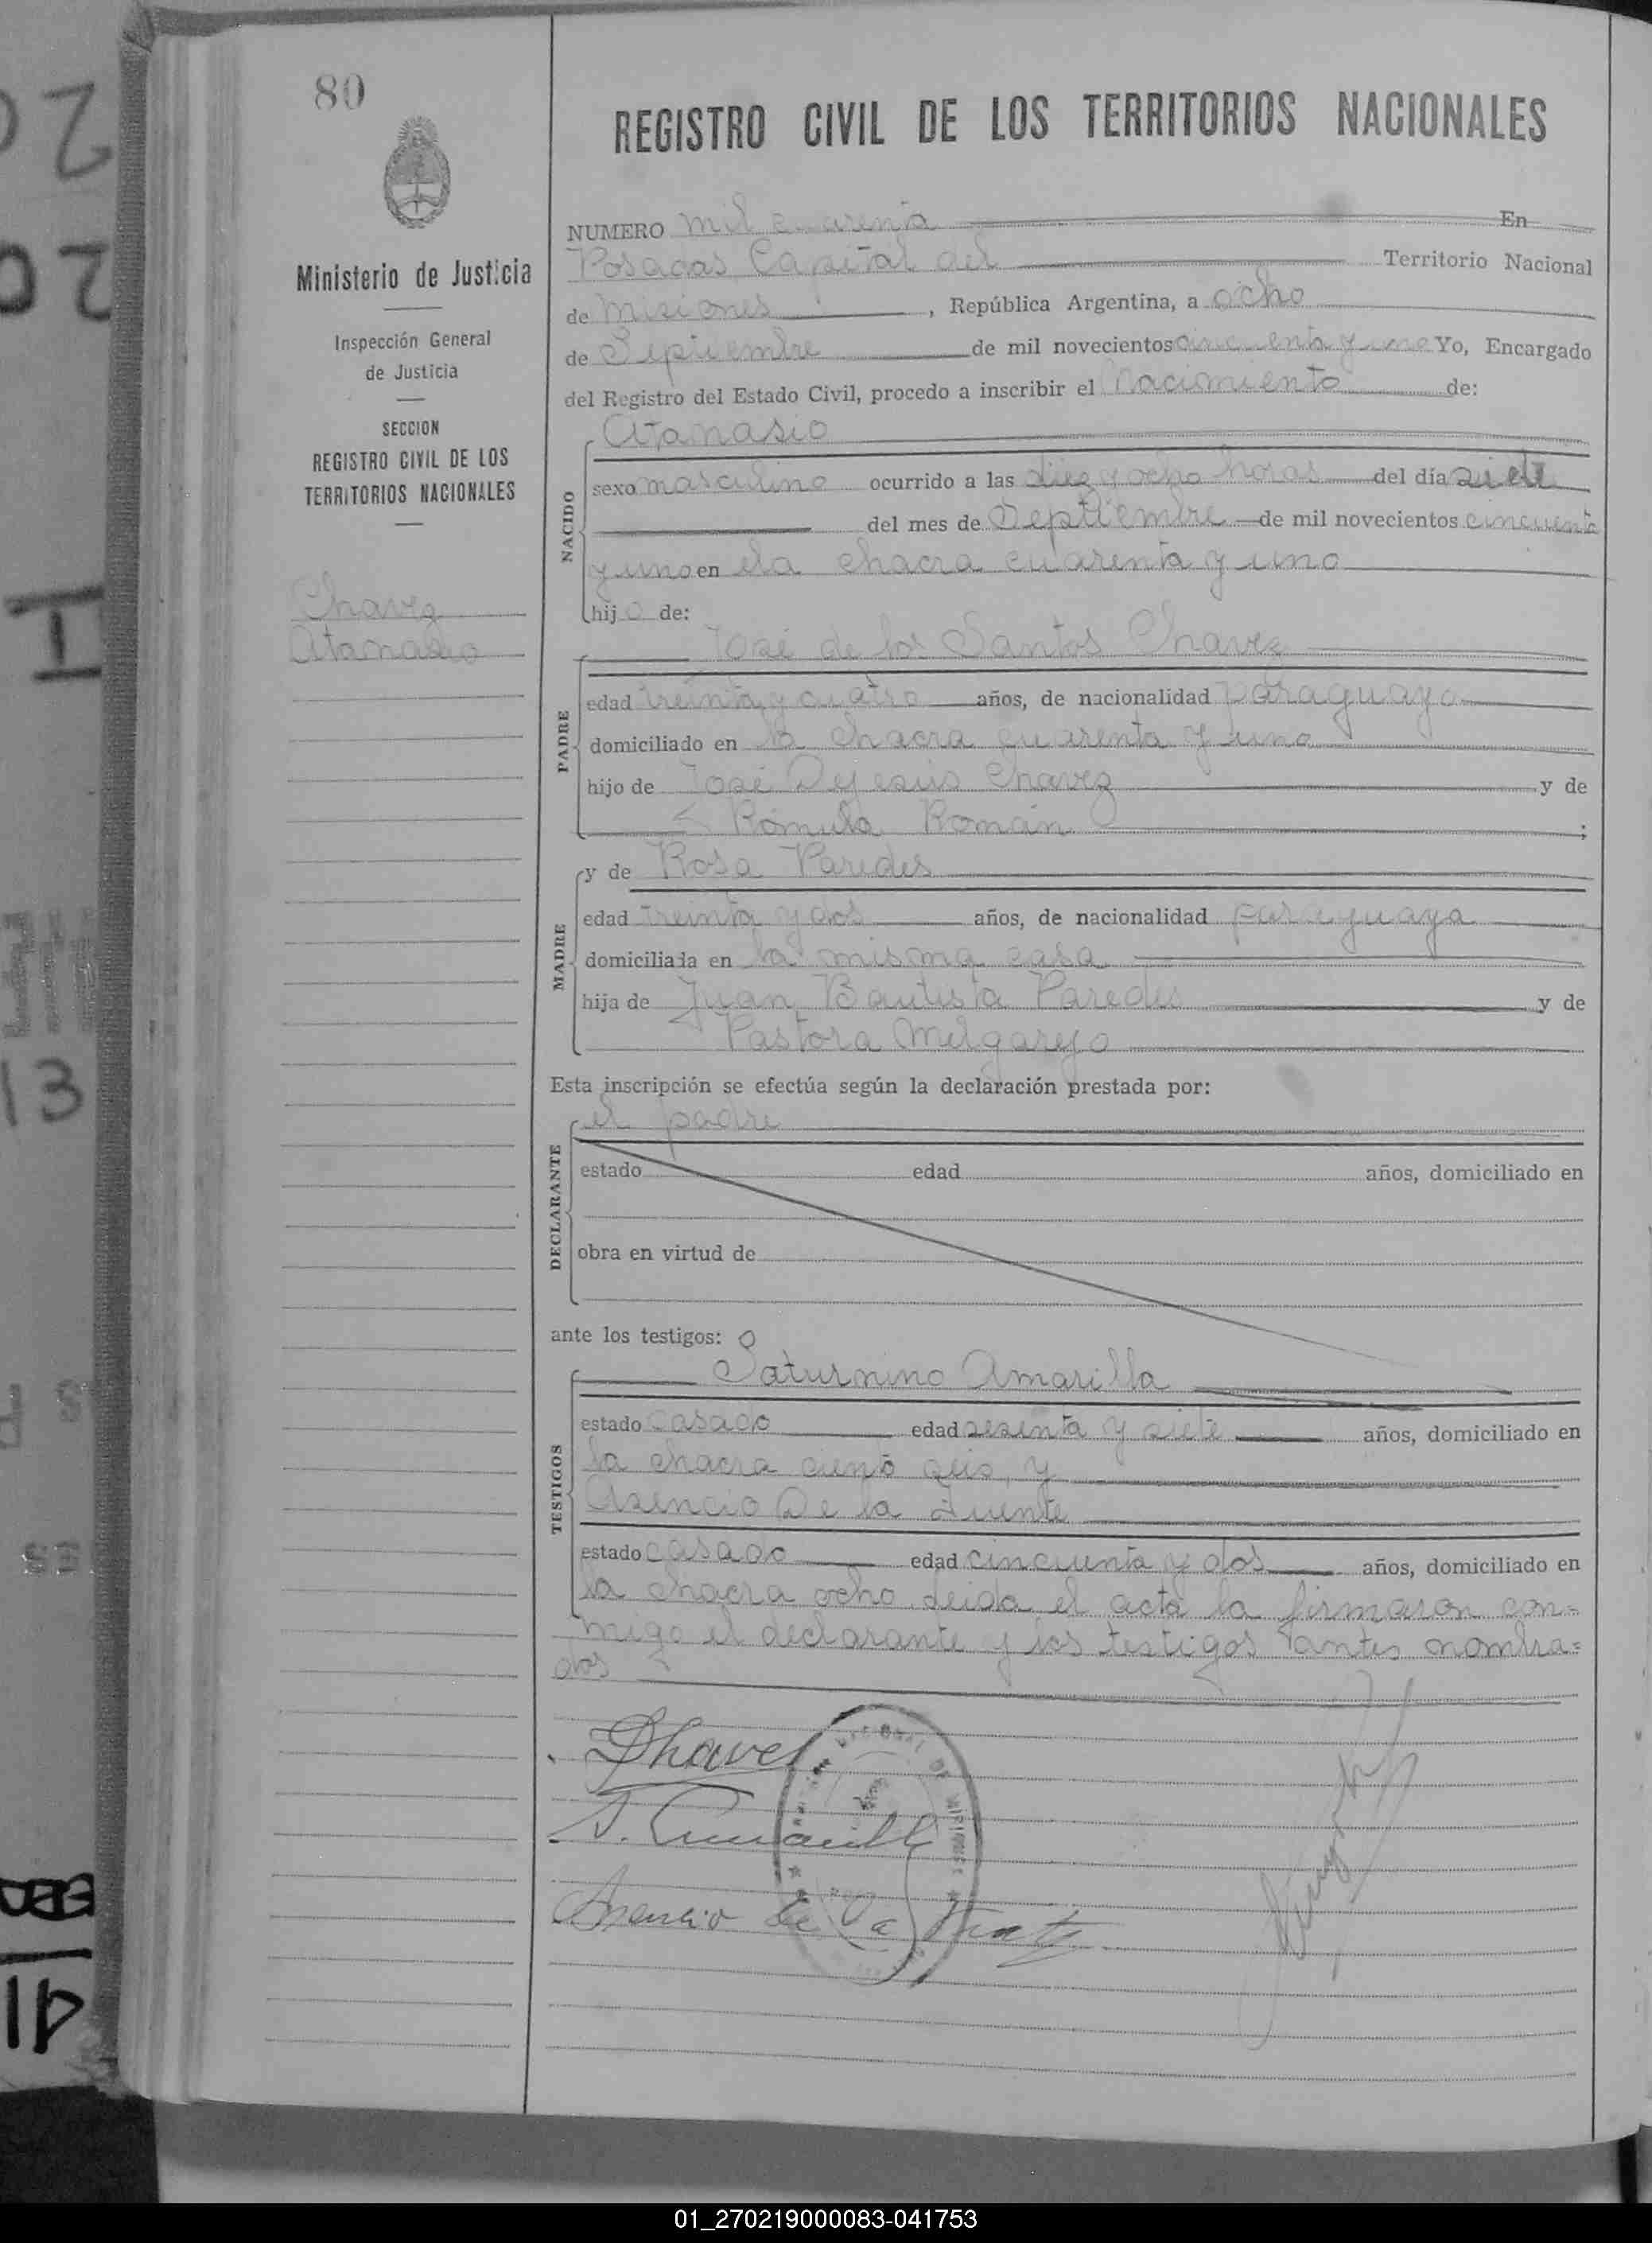 80
REGISTRO CIVIL DE LOS TERRITORIOS NACIONALES
Ministerio de Justicia
Inspección General
de Justicia
SECCION
REGISTRO CIVIL DE LOS
TERRITORIOS NACIONALES
Chavez
Atanasio
NUMERO mil cuarenta En
Posadas Capital del Territorio Nacional
de Misiones, República Argentina, a ocho
de Septiembre de mil novecientos cincuenta y uno Yo, Encargado
del Registro del Estado Civil, procedo a inscribir el Nacimiento de:
NACIDO
Atanasio
sexo masculino ocurrido a las diez y ocho horas del día siete
del mes de Septiembre de mil novecientos cincuenta
y uno en la chacra cuarenta y uno
hijo de:
PADRE
José de los Santos Chavez
edad treinta y cuatro años, de nacionalidad paraguayo
domiciliado en la chacra cuarenta y uno
hijo de José Dejesús Chavez y de
Rómula Román ;
MADRE
y de Rosa Paredes
edad treinta y dos años, de nacionalidad paraguaya
domiciliada en la misma casa
hija de Juan Bautista Paredes y de
Pastora Melgarejo
Esta inscripción se efectúa según la declaración prestada por:
DECLARANTE
el padre
estado edad años, domiciliado en
obra en virtud de
ante los testigos:
TESTIGOS
Saturnino Amarilla
estado casado edad sesenta y siete años, domiciliado en
la chacra ciento seis, y
Asencio De la Fuente
estado casado edad cincuenta y dos años, domiciliado en
la chacra ocho. Leida el acta la firmaron con=
migo el declarante y los testigos antes nombra=
dos
Chavez
S. Amarilla
Asencio de la Fuente
01_270219000083-041753